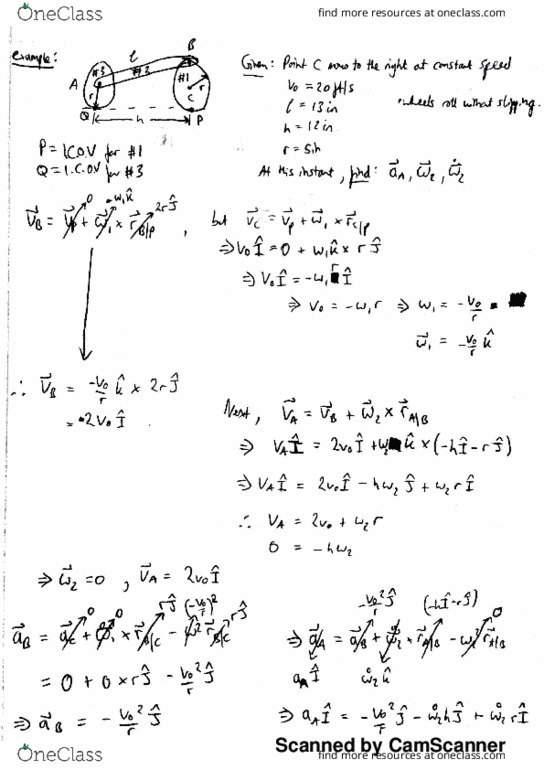 OneClass
find more resources at oneclass.com
example:
l
B
#3
#2
#1
A
r
r
C
Q
h
P
Given: Point C moves to the right at constant speed
v₀ = 20 ft/s
l = 13 in
h = 12 in
r = 5 in
wheels roll without slipping.
At this instant, find: a⃗_A, ω⃗₂, ω̊⃗₂
P = I.C.O.V for #1
Q = I.C.O.V for #3
0
-ω₁k̂
2rĴ
V⃗_B = V⃗_P + ω⃗₁ × r⃗_B/P ,
but V⃗_C = V⃗_P + ω⃗₁ × r⃗_C/P
⇒ V₀Î = 0 + ω₁k̂ × rĴ
⇒ V₀Î = -ω₁rÎ
⇒ V₀ = -ω₁r ⇒ ω₁ = -V₀/r
ω⃗₁ = -V₀/r k̂
∴ V⃗_B = -V₀/r k̂ × 2rĴ
= 2V₀Î
Next, V⃗_A = V⃗_B + ω⃗₂ × r⃗_A|B
⇒ V_AÎ = 2V₀Î + ω₂k̂ × (-hÎ - rĴ)
⇒ V_AÎ = 2V₀Î - hω₂Ĵ + ω₂rÎ
∴ V_A = 2V₀ + ω₂r
0 = -hω₂
⇒ ω⃗₂ = 0 , V⃗_A = 2V₀Î
0
0
rĴ
(-V₀/r)²
rĴ
a⃗_B = a⃗_C + ω̊⃗₁ × r⃗_B|C - ω² r⃗_B|C
= 0 + 0 × rĴ - V₀²/r Ĵ
⇒ a⃗_B = -V₀²/r Ĵ
-V₀²/r Ĵ
(-hÎ-rĴ)
0
⇒ a⃗_A = a⃗_B + ω̊⃗₂ × r⃗_A|B - ω₂² r⃗_A|B
a_AÎ
ω̊₂k̂
⇒ a_AÎ = -V₀²/r Ĵ - ω̊₂hĴ + ω̊₂rÎ
Scanned by CamScanner
OneClass
find more resources at oneclass.com